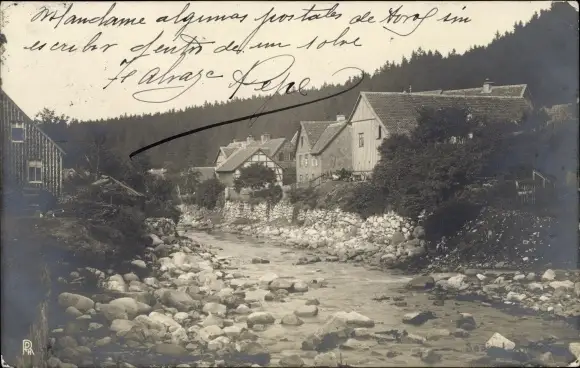 Mandame algunas postales de sin
escribir dentro de un sobre
te abraza Pepe